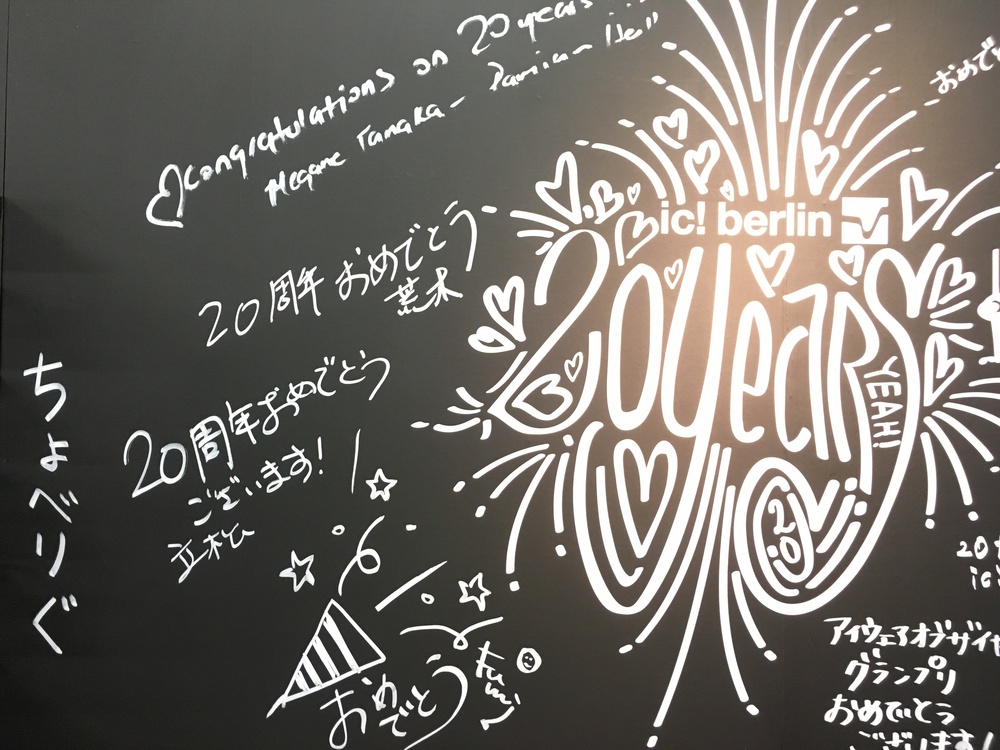 Congratulations on 20 years
Megane Tanaka
おめで
20周年 おめでとう
荒木
ic! berlin
20 years
YEAH!
20
ちょべりぐ
20周年おめでとう
ございます!
おめでとう
20
アイウェアオブザイヤ
グランプリ
おめでとう
ございます!